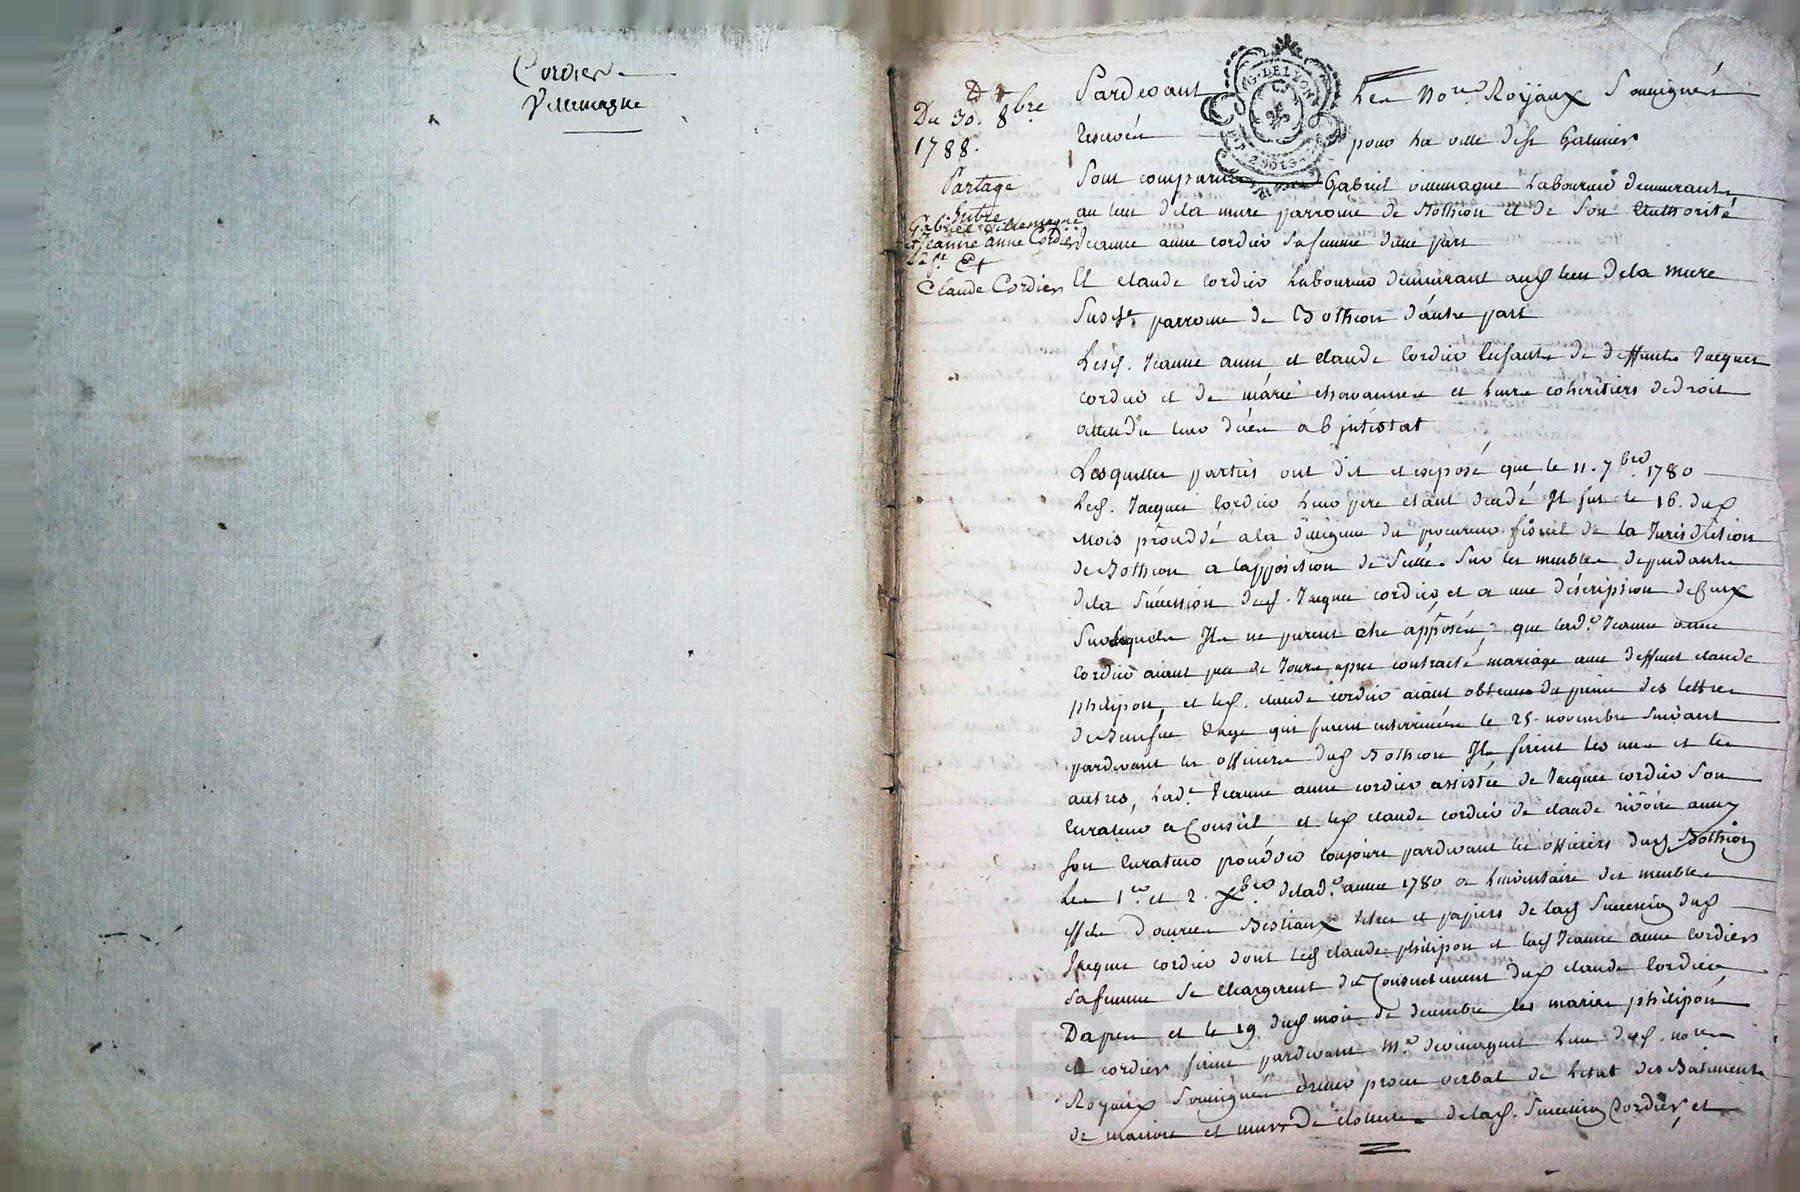 Cordier
Villemagne
Du 30. 8bre
1788.
Partage
Entre
Gabriel Villemagne
et Jeanne Anne Cordier
sa fe. Et
Claude Cordier
G. DE LYON
Pardevant Les Nores Royaux Soussignés
reservés pour La ville de st Galmier
Sont comparus Gabriel villemagne Laboureur demeurant
au lieu de la mure parroisse de Bothéon et de Son Authorité
Jeanne anne cordier Sa femme d'une part
Et claude Cordier Laboureur demeurant aud lieu de la mure
Susde parroisse de Bothéon d'autre part
Lesd. Jeanne anne et claude Cordier Enfants de deffunts Jacques
cordier et de marie chavannes et Leurs coheritiers de droit
attendu leur décès ab jntéstat
Lesquelles parties ont dit et exposé que le 11. 7bre 1780
Led. Jacques Cordier Leur pere étant décédé Jl fut le 16. dud
mois procédé a la diligence du procureur fiscal de la Jurisdiction
de Bothéon a l'apposition de Scellé Sur les meubles dependants
de la Succession dud. Jacques cordier et a une déscription de Ceux
Surlesquels Jls ne purent etre apposés; que lade Jeanne anne
Cordier aiant peu de Jours apres contracté mariage avec deffunt claude
philipon, et led. claude cordier aiant obtenu du prince des lettres
de Benefice d'age qui furent enterrinées le 25. novembre Suivant
pardevant les officiers dud Bothéon Jls firent les uns et les
autres, lade Jeanne anne cordier assistée de Jacques cordier Son
Curateur et led claude cordier de claude
Son Curateur procéder toujours pardevant les officiers dud Bothéon
Les 1er et 2. Xbre de lade année 1780 a L'inventaire des meubles
effets Bestiaux titres et papiers de lad Succession dud
Jacques cordier dont led claude philipon et lad Jeanne anne Cordier
Sa femme Se Chargerent du Consentement dud claude Cordier
D'apres et le 19 dud mois de decembre les mariés philipon
et cordier firent pardevant Me L'un desd. nores
Royaux Soussignés proces verbal de L'etat des Batiments
de maison et murs de cloture de lad. Succession Cordier, et